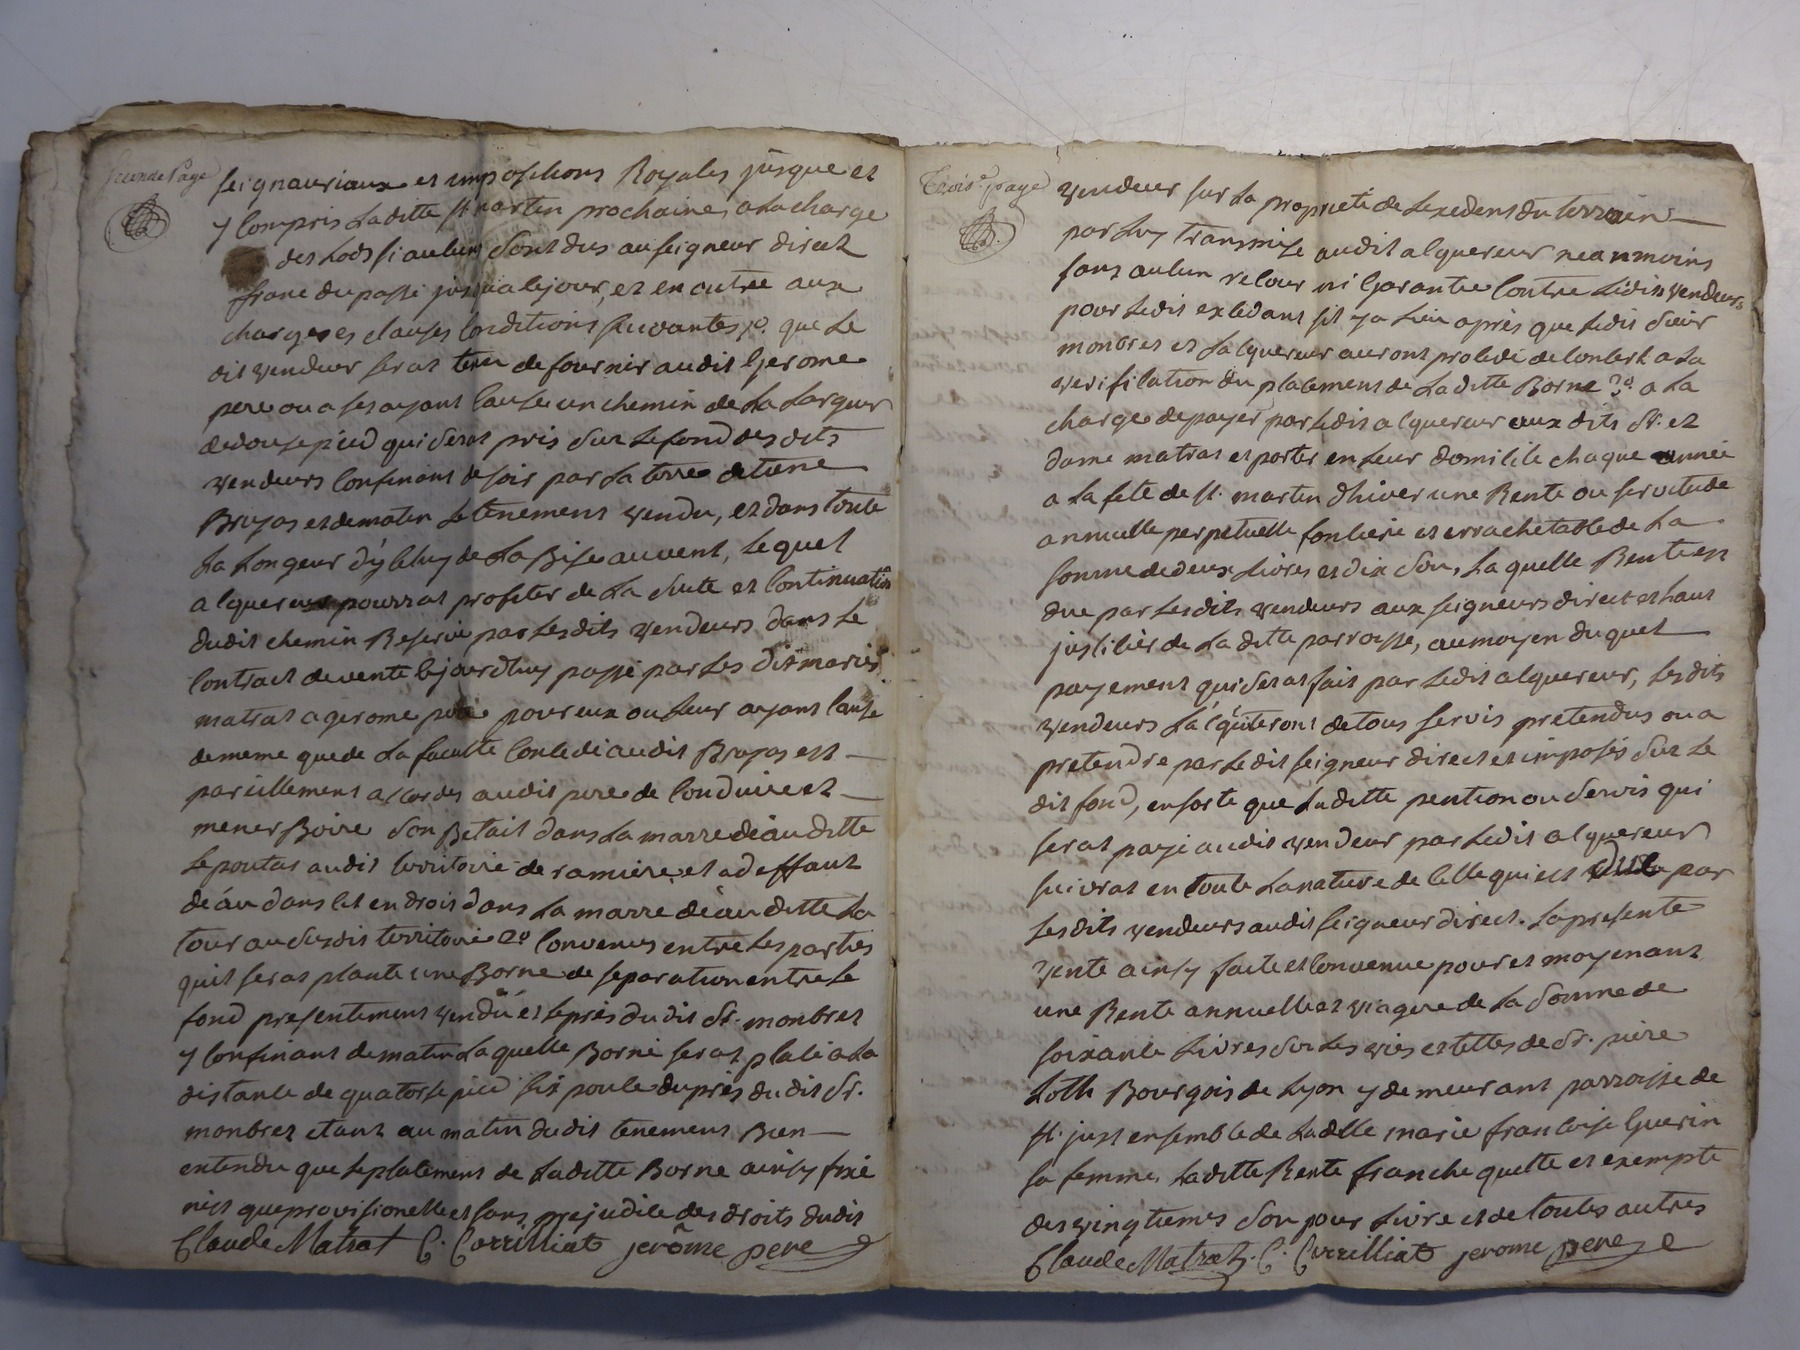 Seconde Page
seignauriaux et impositions Royales jusque et
y compris Laditte st martin prochaine, a La charge
des Lods si aucuns sont dus au seigneur direct
franc du passé jusqu'a cejour, et en outre aux
charges es clauses conditions suivantes 1o. que Le
dit vendeur serat tenu de fournir audit Gerome
pere ou a ses ayant cause un chemin de La Largeur
dedouse pied qui serat pris sur Le fond des dits
vendeurs confinant de soir par La terre de
Broyas et de matin Le tenement vendu, et dans toute
La Longeur d'yceluy de La Bise au vent, Lequel
acquereur pourrat profiter de La suite et continuation
dudit chemin Reservé par Lesdits vendeurs dans Le
contract de vente cejourdhuy passé par Les dit mariés
matrat a gerome pere pour eux ou Leur ayant cause
de meme que de La faculté concedé audit Broyas est
pareillement accordés audit pere de conduire et
mener Boire son Betail dans La marre déau ditte
Lepoutat audit territoire de ramiere et adeffaut
déau dans cet endroit dans La marre déau ditte La
tour au susdit territoire 2o convenus entre Les parties
quil serat planté une Borne de separation entre Le
fond presentement vendu et Leprés du dit Sr. monbret
y confinant de matin Laquelle Borne serat placé a La
distance de quatorse pied six pouce duprés dudit Sr.
monbret etant au matin dudit tenement Bien
entendu que Leplacement de Laditte Borne ainsy fixé
nest que provisionelle et sans prejudice des droits dudit
Claude Matrat C. Corrilliat jerôme pere
Trois.e page
vendeur sur La proprieté de Lexedent du terrain
par Luy transmise audit acquereur neanmoins
sans aucun retour ni Garantie contre Ledit vendeurs
pour Ledit excedant sil ya Lieu aprés que Ledit Sieur
monbret et Lacquereur auront procedé de concert a La
verification du placement de Laditte Borne 3o. a La
charge de payer par Ledit acquereur aux dits Sr. et
dame matrat et porter en Leur domicile chaque année
a La fete de st. martin dhiver une Rente ou servitude
annuelle perpetuelle fonciere et errachetable de La
somme de deux Livres et dix Sou, La quelle Rente est
due par Lesdits vendeurs aux seigneurs direct et haut
justicier de La ditte parroisse, au moyen du quel
payement qui serat fait par Ledit acquereur, Lesdits
vendeurs Lacquiteront de tous servis pretendus ou a
pretendre par Ledit seigneur direct et imposés sur Le
dit fond, ensorte que Laditte pention ou servis qui
serat payé audit vendeur par Ledit acquereur
suivrat en toute La nature de Celle qui est due par
Lesdits vendeurs audit seigneur direct. La presente
vente ainsy faite et convenue pour et moyenant
une Rente annuelle et viagere de La Somme de
soixante Livres sur Les vies et tettes de Sr. piere
Loth Bourgois de Lyon y demeurant parroisse de
st. just ensemble de Ladelle marie francoise Guerin
sa femme, Laditte Rente franche quitte et exempte
des vingtiemes sou pour Livre et de toutes autres
Claude Matrat C. Corrilliat jerome pere